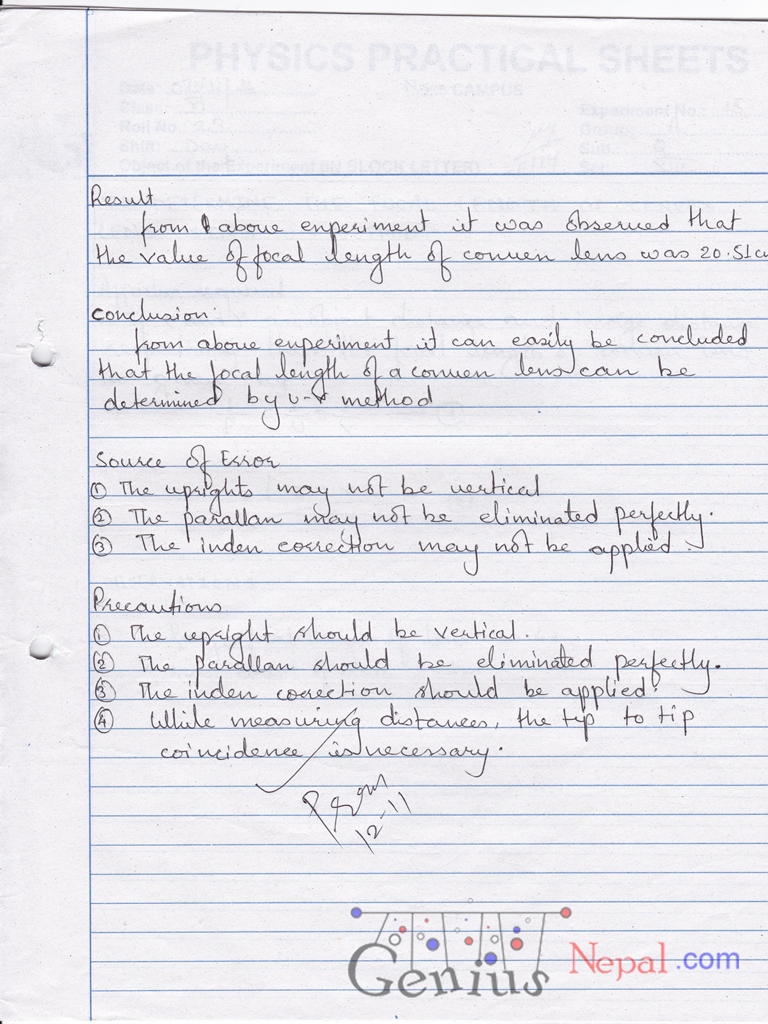 PHYSICS PRACTICAL SHEETS
CAMPUS
Result
from above enperiment it was observed that
the value of focal length of conven lens was 20.51cm
Conclusion:
from above enperiment it can easily be concluded
that the focal length of a conven lens can be
determined by u-v method
Source of Error
① The uprights may not be vertical
② The parallan may not be eliminated perfectly.
③ The inden correction may not be applied.
Precautions
① The upright should be vertical.
② The parallan should be eliminated perfectly.
③ The inden correction should be applied.
④ While measuring distances, the tip to tip
coincidence is necessary.
12-11
Genius Nepal.com